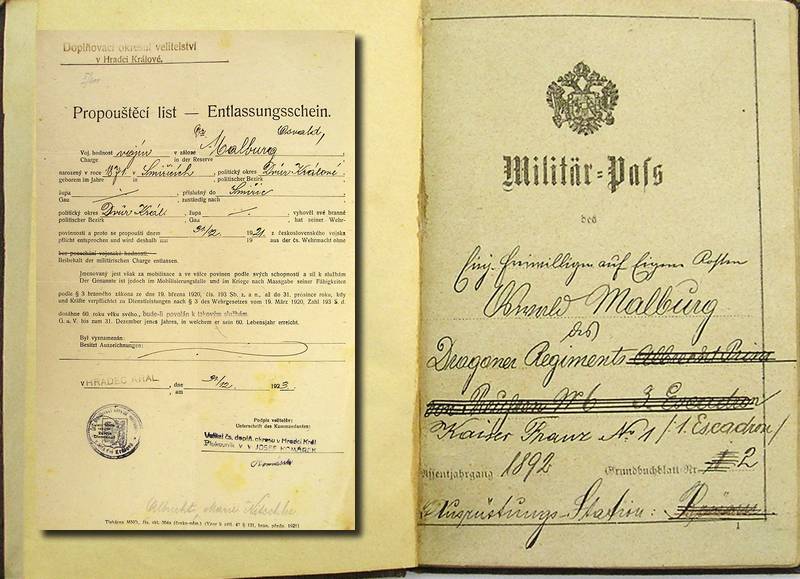 Doplňovací okresní velitelství
v Hradci Králové.
Propouštěcí list — Entlassungsschein.
Oswald,
Voj. hodnost vojín v záloze Malburg
Charge in der Reserve
narozený v roce 1871 v Smiřicích, politický okres Dvůr-Králové,
geboren im Jahre politischer Bezirk
župa — , příslušný do Smiřic
Gau zuständig nach
politický okres Dvůr-Král. , župa — , vyhověl své branné
politischer Bezirk , Gau hat seiner Wehr-
povinnosti a proto se propouští dnem 31/12. 1921. z československého vojska
pflicht entsprochen und wird deshalb mit 19 aus der čs. Wehrmacht ohne
bez ponechání vojenské hodnosti.
Beibehalt der militärischen Charge entlassen.
Jmenovaný jest však za mobilisace a ve válce povinen podle svých schopností a sil k službám
Der Genannte ist jedoch im Mobilisierungsfalle und im Kriege nach Massgabe seiner Fähigkeiten
podle § 3 branného zákona ze dne 19. března 1920, čís. 193 Sb. z. a n., až do 31. prosince roku, kdy
und Kräfte verpflichtet zu Dienstleistungen nach § 3 des Wehrgesetzes vom 19. März 1920, Zahl 193 S. d.
dosáhne 60. roku věku svého, bude-li povolán k takovým službám.
G. u. V. bis zum 31. Dezember jenes Jahres, in welchem er sein 60. Lebensjahr erreicht.
Byl vyznamenán:
Besitzt Auszeichnungen:
V HRADEC KRÁL. , dne 31/12. 1923.
, am
Podpis velitelův:
Unterschrift des Kommandanten:
Velitel čs. doplň. okresu v Hradci Král.
Plukovník JOSEF KOMÁREK
Albrecht, Marie
Tiskárna MNO,
Militär-Paß
des
Einj. Freiwilligen auf Eigene Kosten
Oswald Malburg
des
Dragoner Regiments Albrecht Prinz
von Preußen N° 6 3. Escadron
Kaiser Franz N° 1 /: 1. Escadron /
Assentjahrgang 1892 Grundbuchblatt-Nr. 2
Ausrüstungs-Station:
1